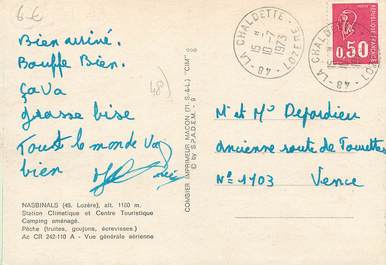 6€
Bien arrivé.
Bouffe Bien.
ça va
grosse bise
Tout le monde va
bien
48)
NASBINALS (48. Lozère), alt. 1180 m.
Station Climatique et Centre Touristique
Camping aménagé.
Pêche (truites, goujons, écrevisses)
Ac CR 242-110 A - Vue générale aérienne
COMBIER IMPRIMEUR MACON (71. S.-&-L.) "CIM"
© by S.P.A.D.E.M. - 9
48 - LA CHALDETTE - LOZERE
15 H
10-7
1973
0,50
REPUBLIQUE FRANCAISE
Mr et Me Depardieu
ancienne route de Tourettes
No 1703
Vence